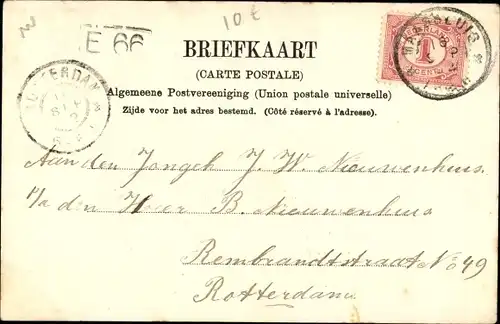 10 €
E 66
BRIEFKAART
(CARTE POSTALE)
Algemeene Postvereeniging (Union postale universelle)
Zijde voor het adres bestemd. (Côté réservé à l'adresse).
Aan den Jongeh J. W. Nieuwenhuis.
p/a den Heer B. Nieuwenhuis
Rembrandtstraat No 49
Rotterdam.